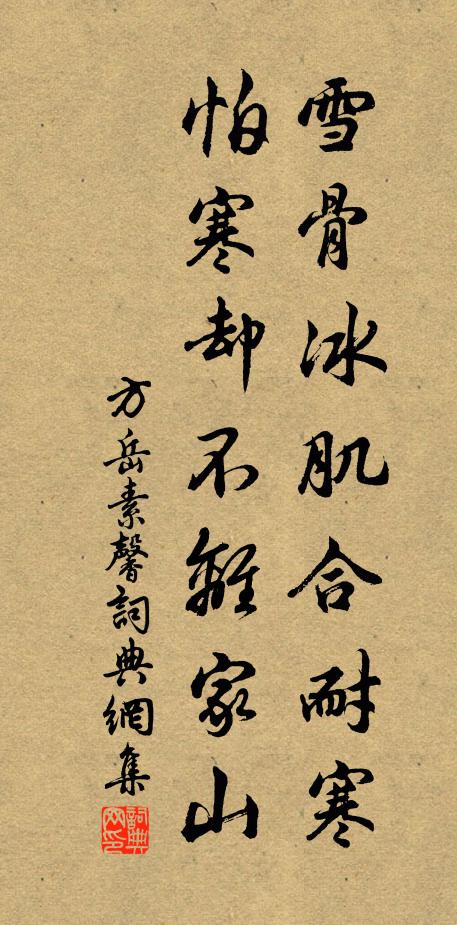 雪骨冰肌合耐寒
怕寒却不離家山
方岳素馨詞典網集
詞典网印